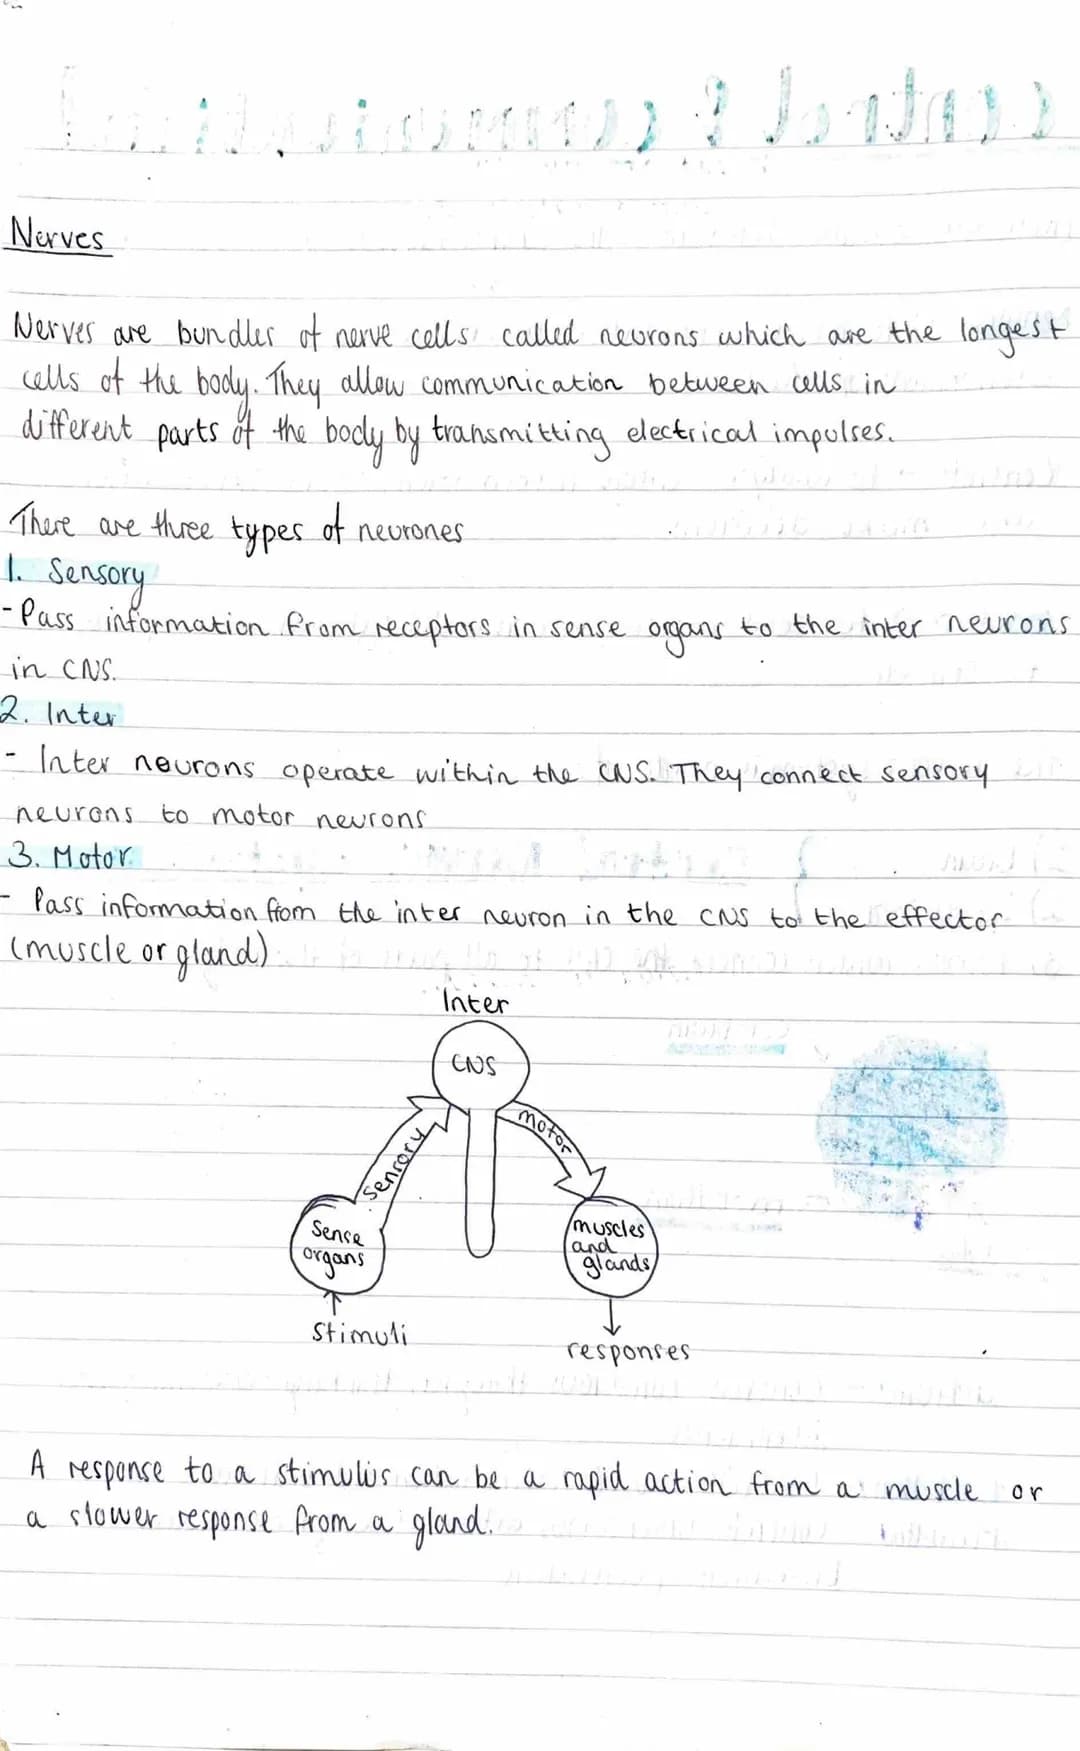 Nerves
Nerves are bundles of nerve cells called neurons which are the longest
cells of the body. They allow communication between cells in
different parts of the body by transmitting electrical impulses.
There are three types of neurones
1. Sensory
-Pass information from receptors in sense organs to the inter neurons
in CNS.
2. Inter
- Inter neurons operate within the CNS. They connect sensory
neurons to motor neurons
3. Motor.
- Pass information from the inter neuron in the CNS to the effector
(muscle or gland)
Inter
CNS
sensory
motor
Sense
organs
muscles
and
glands
stimuli
responses
A response to a stimulus can be a rapid action from a muscle or
a slower response from a gland.